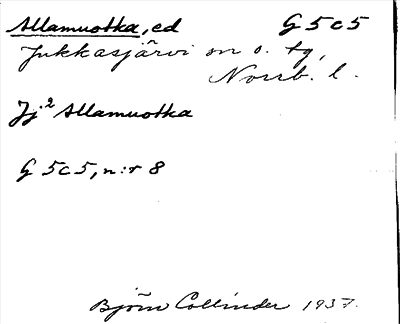 Allamuotka, ed G 5 c 5
Jukkasjärvi sn o. tg,
Norrb. l.
Jj² Allamuotka
G 5 c 5, n:r 8
Björn Collinder 1937.